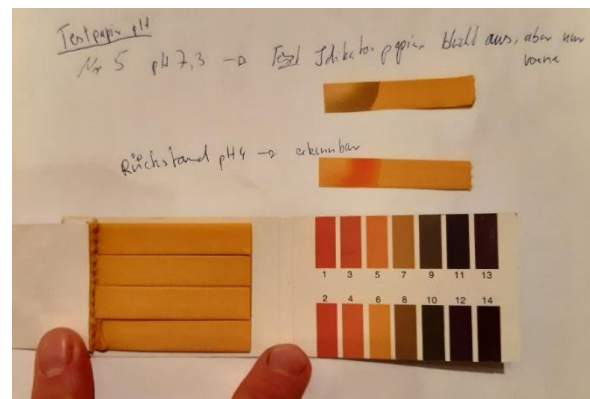 Testpapier pH
Nr 5 pH 7,3 → Test Idikator papier bleicht aus, aber nur
vorne
Rückstand pH 4 → erkennbar
1 3 5 7 9 11 13
2 4 6 8 10 12 14